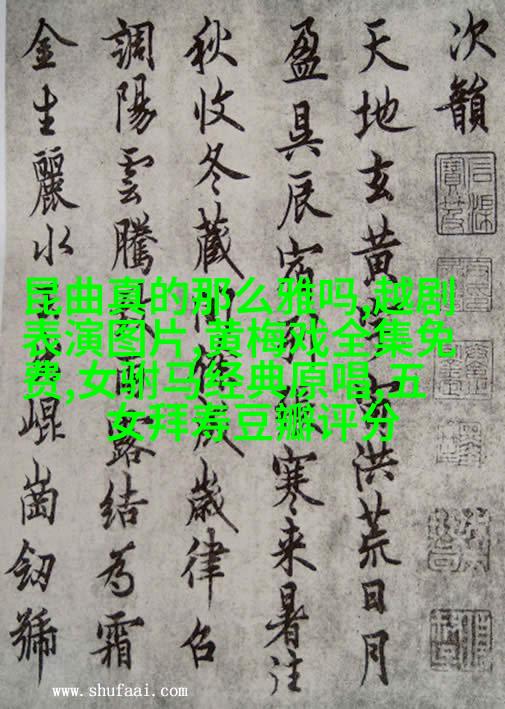 次韻
天地玄黄宇洪荒日月
盈昃辰宿寒来暑往
秋收冬藏閏歲律召
調陽雲騰露結為霜
金生麗水崐崗劒號
昆曲真的那么雅吗,越剧
表演图片,黄梅戏全集免
费,女驸马经典原唱,五
女拜寿豆瓣评分
www.shufaai.com